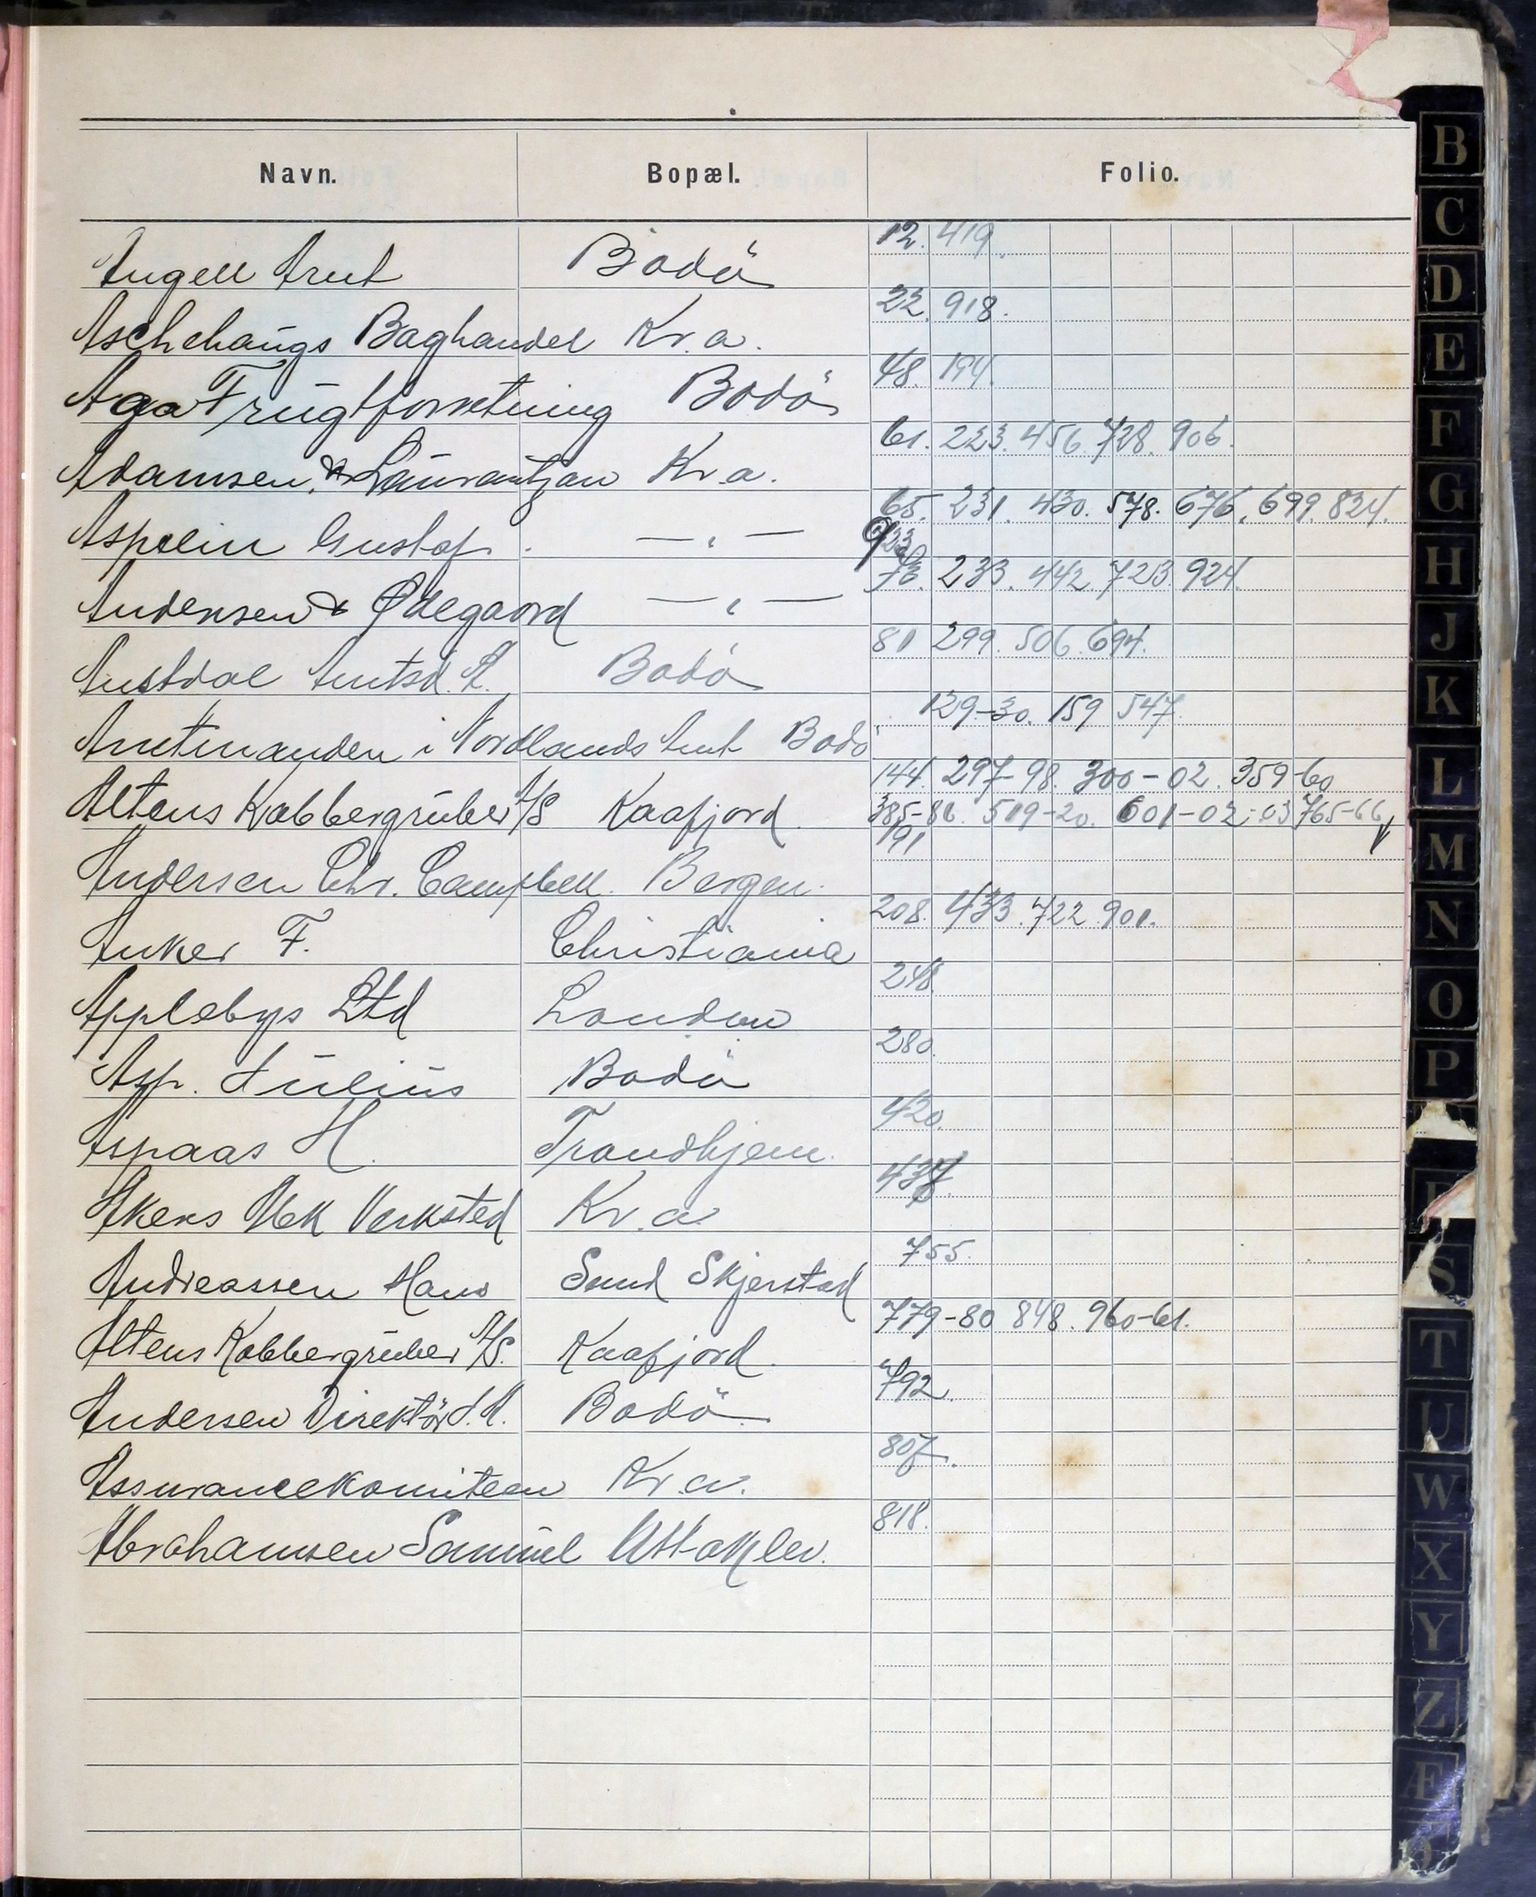 Navn. Bopæl. Folio.
Angell Arnt Bodö 12. 419.
Aschehaugs Boghandel Kr.a. 22. 918.
Aga Frugtforretning Bodö 48. 194.
Adamsen & Laurantzon Kr.a. 61. 223. 456. 728. 906.
Aspelin Gustaf. —„— 65. 231. 430. 578. 676. 699. 824.
923
Andersen & Ødegaard —„— 73. 233. 442. 723. 924.
Austdal Amtsd. Bodö 81 299. 506. 694.
Amtmanden i Nordlands Amt Bodö 129-30. 159 547
Altens Kobbergruber A/S Kaafjord 144. 297-98. 300-02. 359-60
385-86. 519-20. 601-02-03 765-66
Andersen Chr. Campbell. Bergen. 191
Anker F. Christiania 208. 433. 722. 901.
Applebys Ltd London 248
Asp. Julius Bodö 280.
Aspaas H. Trondhjem. 420.
Akers Mek Verksted Kr.a 437.
Andreassen Hans Sund Skjerstad 755.
Altens Kobbergruber A/S. Kaafjord. 779-80 848. 960-61.
Andersen Direktör Bodö 792.
Assurancekomiteen Kr.a. 807.
Abrahamsen Samuel 818.
B
C
D
E
F
G
H
J
K
L
M
N
O
P
S
T
U
W
X
Y
Z
Æ